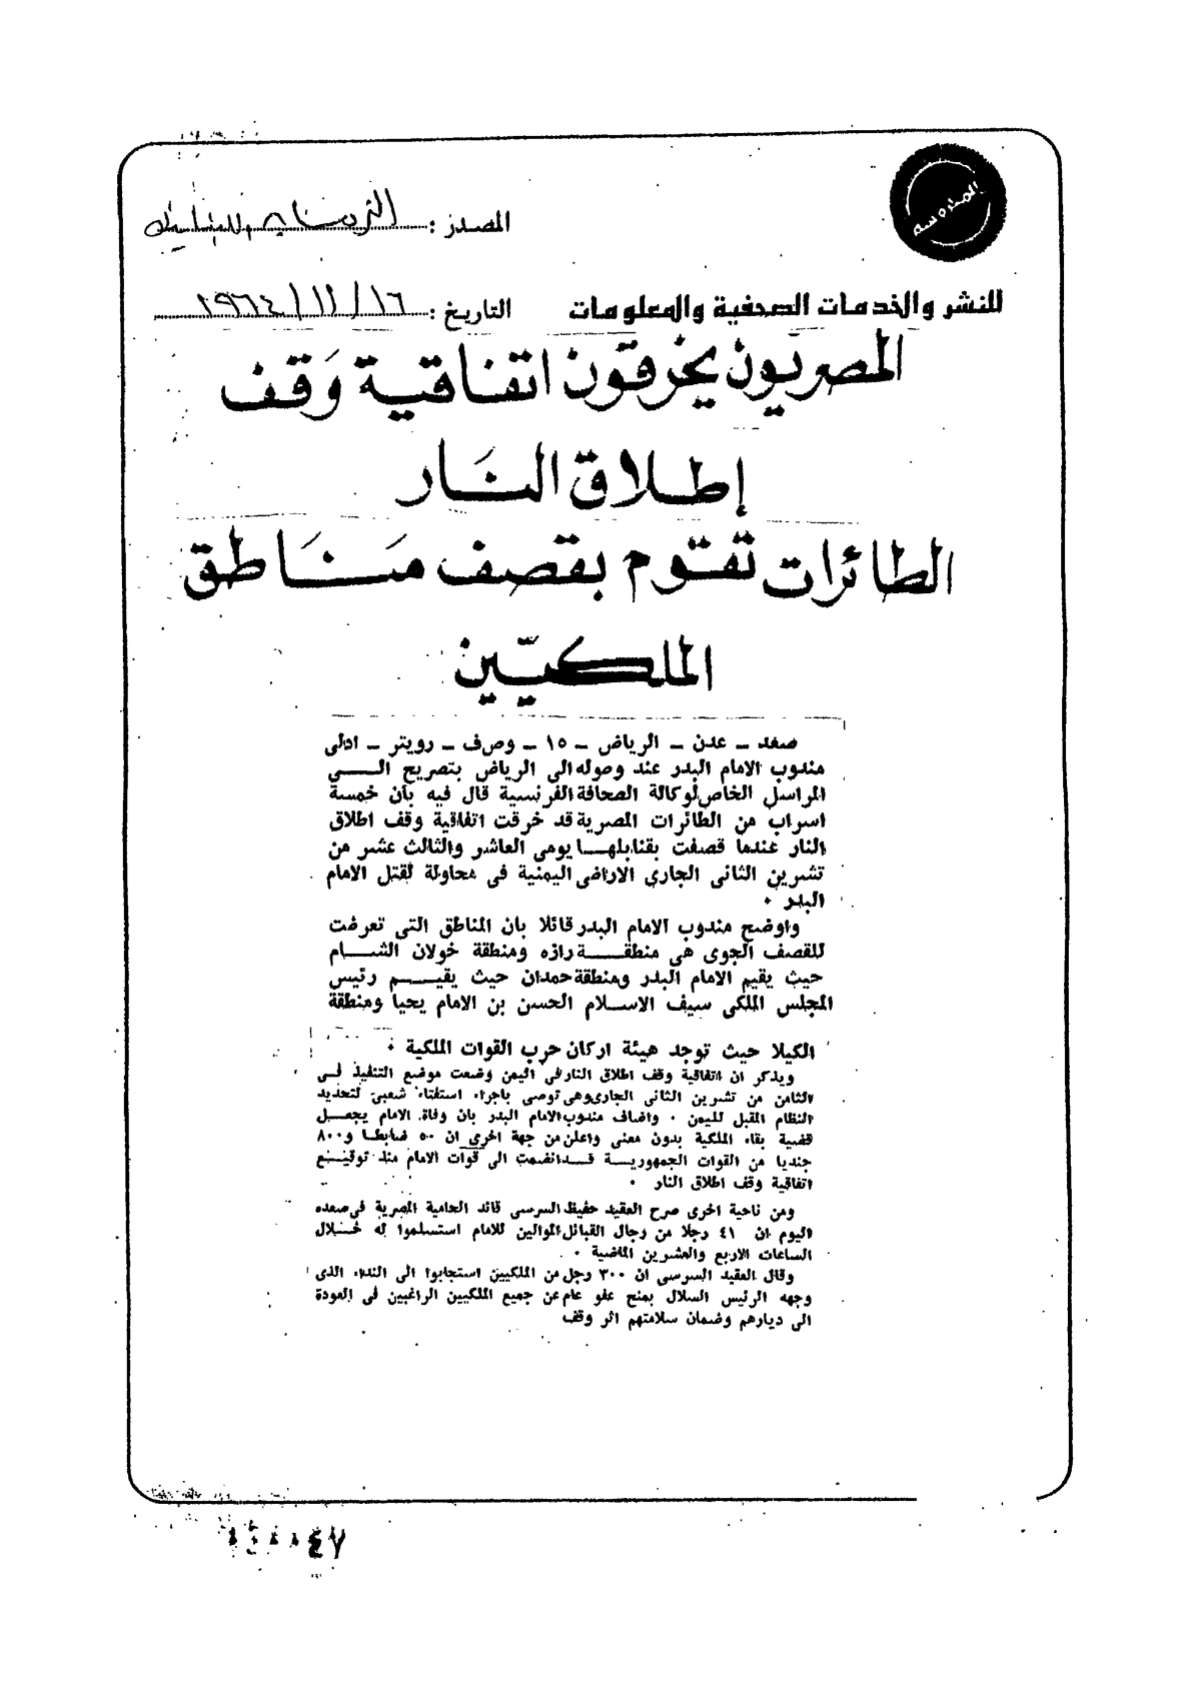 المحروسة
المصدر :
للنشر والخدمات الصحفية والمعلومات
التاريخ : ١٦ / ١١ / ١٩٦٤
المصريون يخرقون اتفاقية وَقف
إطلاق النَار
الطائرات تقوم بقصف مَنَاطق
الملكيّين
صعد ـ عدن ـ الرياض ـ ١٥ ـ وصف ـ رويتر ـ ادلى
مندوب الامام البدر عند وصوله الى الرياض بتصريح الـــى
المراسل الخاص لوكالة الصحافة الفرنسية قال فيه بان خمسة
اسراب من الطائرات المصرية قد خرقت اتفاقية وقف اطلاق
النار عندما قصفت بقنابلهـا يومى العاشر والثالث عشر من
تشرين الثانى الجارى الاراضى اليمنية فى محاولة لقتل الامام
البدر .
واوضح مندوب الامام البدر قائلا بان المناطق التى تعرضت
للقصف الجوى هى منطقـــة رازه ومنطقة خولان الشــام
حيث يقيم الامام البدر ومنطقة حمدان حيث يقيـــم رئيس
المجلس الملكى سيف الاســلام الحسن بن الامام يحيا ومنطقة
الكيلا حيث توجد هيئة اركان حرب القوات الملكية .
ويذكر ان اتفاقية وقف اطلاق النار فى اليمن وضعت موضع التنفيذ فــى
الثامن من تشرين الثانى الجارى وهى توصى باجراء استفتاء شعبى لتحديد
النظام المقبل لليمن . واضاف مندوب الامام البدر بان وفاة الامام يجعــل
قضية بقاء الملكية بدون معنى واعلن من جهة اخرى ان ٥٠ ضابطـا و٨٠٠
جنديا من القوات الجمهوريـــة قــد انضمت الى قوات الامام منذ توقيــع
اتفاقية وقف اطلاق النار .
ومن ناحية اخرى صرح العقيد حفيظ السرسى قائد الحامية المصرية فى صعده
اليوم ان ٤١ رجلا من رجال القبائل الموالين للامام استسلموا له خــلال
الساعات الاربع والعشرين الماضية .
وقال العقيد السرسى ان ٣٠٠ رجل من الملكيين استجابوا الى النداء الذى
وجهه الرئيس السلال بمنح عفو عام عن جميع الملكيين الراغبين فى العودة
الى ديارهم وضمان سلامتهم اثر وقف